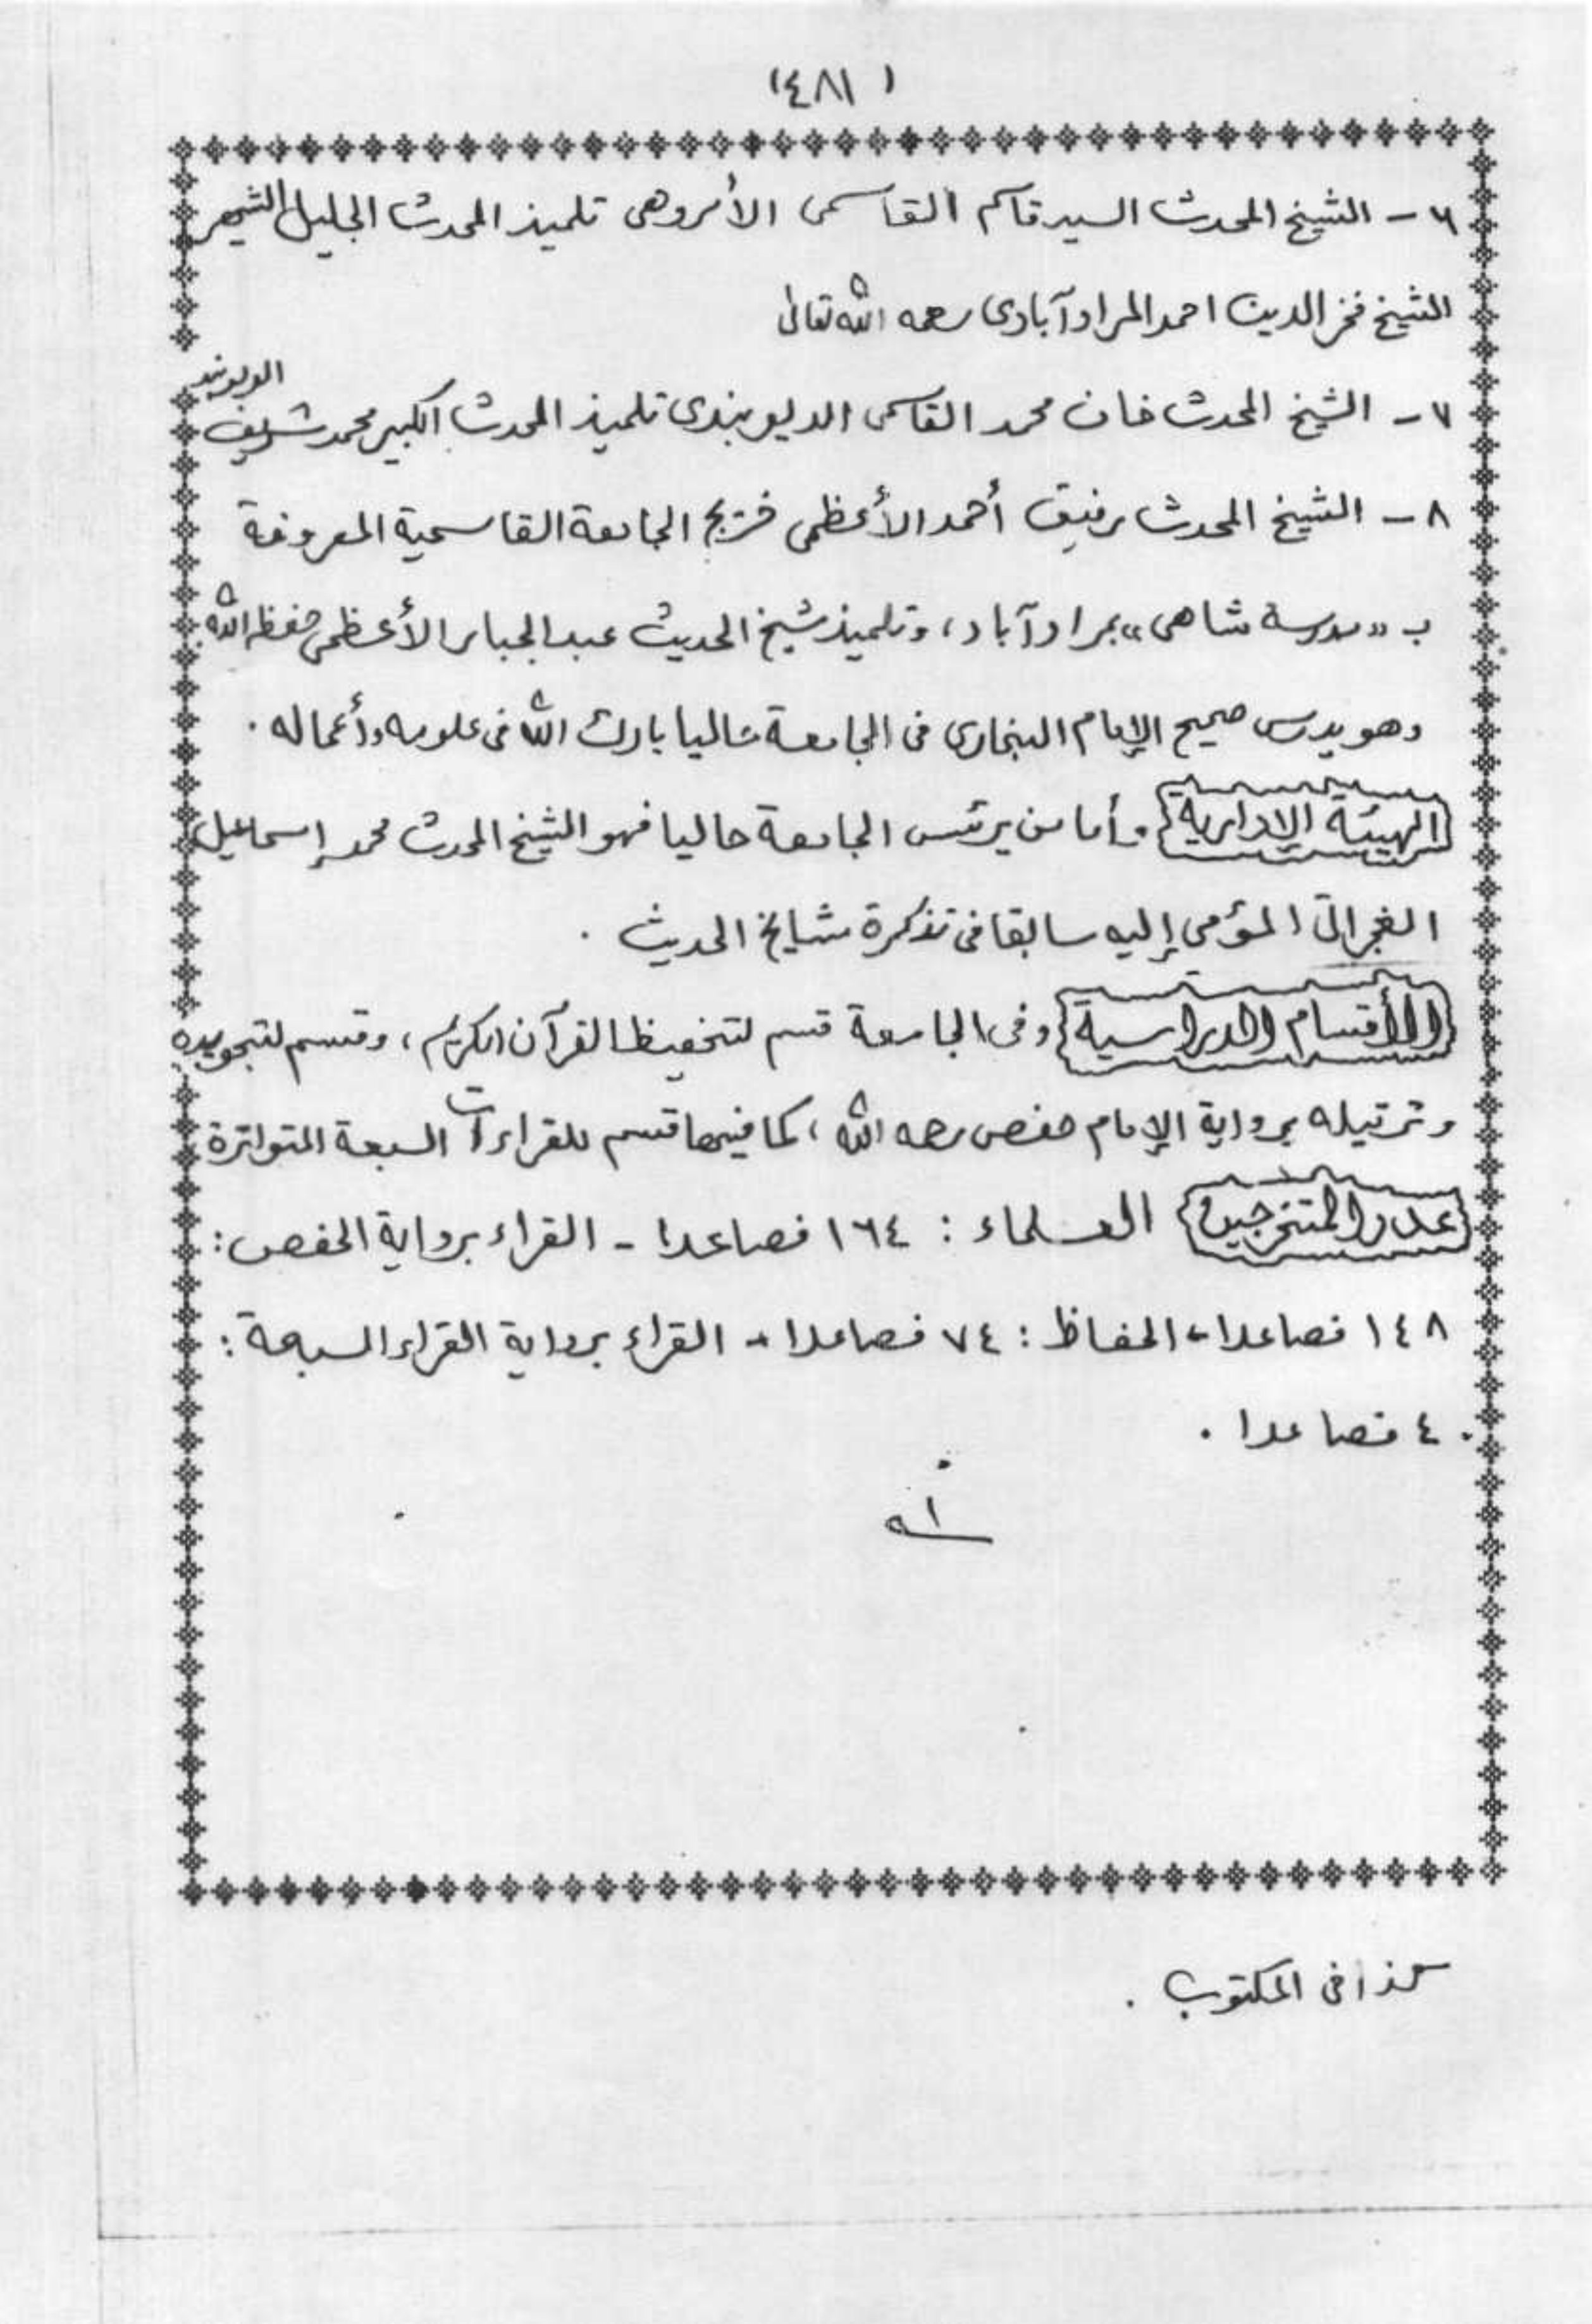 (٤٨١)
٦ - الشيخ المحدث السيد قاسم القاسمى الأمروهى تلميذ المحدث الجليل الشهير
الشيخ فخر الدين احمد المرادآبادى رحمه الله تعالى
٧ - الشيخ المحدث خان محمد القاسمى الديوبندى تلميذ المحدث الكبير محمد شريف الديوبندى
٨ - الشيخ المحدث رفيق أحمد الأعظمى خريج الجامعة القاسمية المعروفة
ب «مدرسة شاهى» بمرادآباد، وتلميذ شيخ الحديث عبد الجبار الأعظمى حفظه الله
وهو يدرس صحيح الإمام البخارى فى الجامعة حاليا بارك الله فى علومه وأعماله .
الهيئة الإدارية وأما من يرئس الجامعة حاليا فهو الشيخ المحدث محمد إسماعيل
الغجراتى المؤمى إليه سابقا فى تذكرة مشايخ الحديث .
الأقسام الدراسية وفى الجامعة قسم لتحفيظ القرآن الكريم، وقسم لتجويده
وترتيله برواية الإمام حفص رحمه الله، كما فيها قسم للقراءات السبعة المتواترة
عدد المتخرجين العلماء : ١٦٤ فصاعدا - القراء برواية الحفص :
١٤٨ فصاعدا - الحفاظ : ٧٤ فصاعدا - القراء برواية القراء السبعة :
٤٠ فصاعدا .
اه
كذا فى المكتوب .